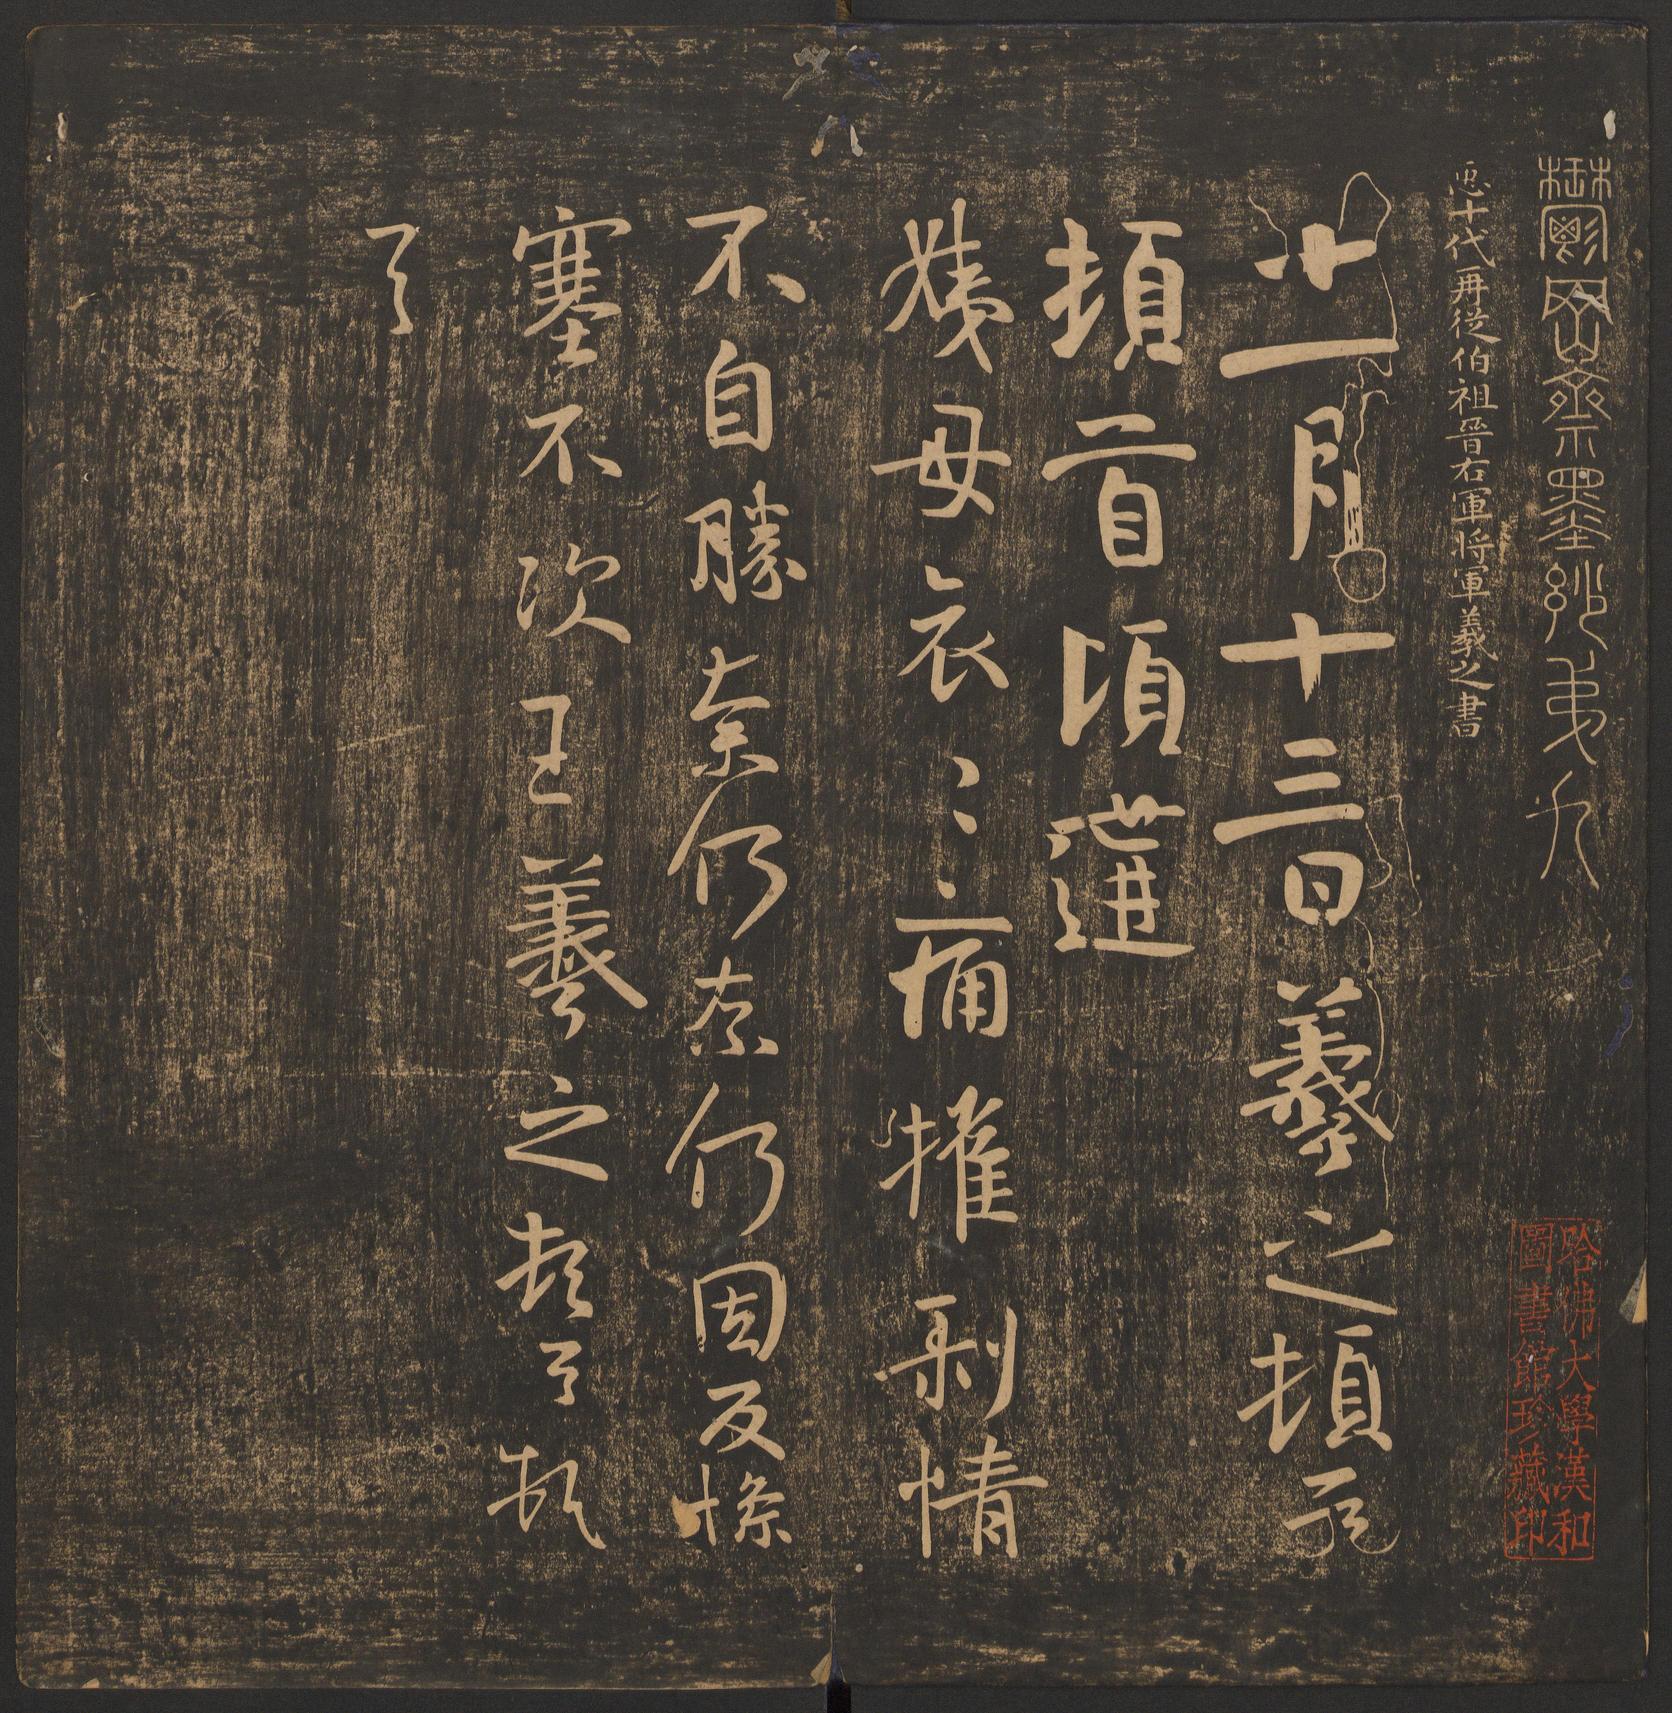 鬱岡齋墨妙弟九
𢘑十代再從伯祖晉右軍將軍羲之書
十一月十三日羲之頓首
頓首頃遘
姨母哀〻〻痛摧剝情
不自勝奈何奈何因反慘
塞不次王羲之頓首頓
首
哈佛大學漢和
圖書館珍藏印